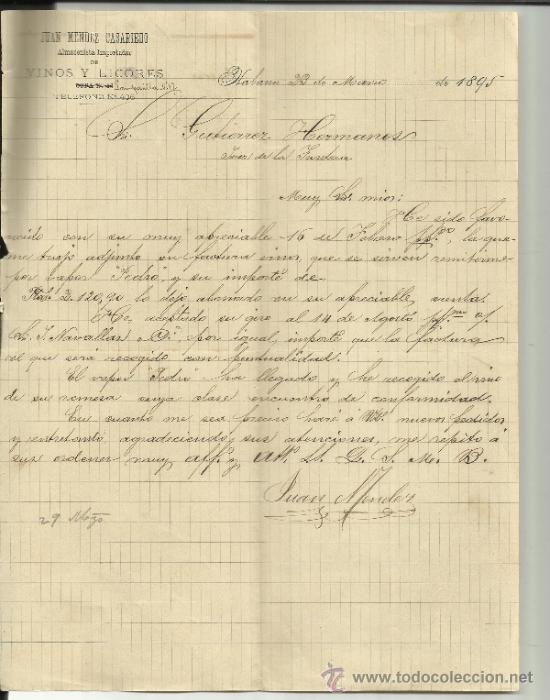 JUAN MENDEZ CASARIEGO
Almacenista Importador
DE
VINOS Y LICORES
TELEFONO
Habana 23 de Marzo de 1895
Gutierrez Hermanos
Jerez de la Frontera
Muy Sr. mios:
He sido favo-
recido con su muy apreciable 16 de Febrero ppdo, la que
me trajo adjunto su factura vinos, que se sirven remitirme
por vapor "Pedro", y su importe de
2.120,90 lo dejo abonado en su apreciable cuenta.
He aceptado su giro al 14 de Agosto
J. Navallas y Ca. por igual importe que la factura
el que será recogido con puntualidad.
El vapor "Pedro" ha llegado y he recogido el vino
de su remesa cuya clase encuentro de conformidad.
En cuanto me sea preciso haré á Vds. nuevos pedidos
y entretanto agradeciendo sus atenciones, me repito á
sus ordenes muy aff. y att. S. S. Q. S. M. B.
Juan Mendez
29 Marzo
www.todocoleccion.net